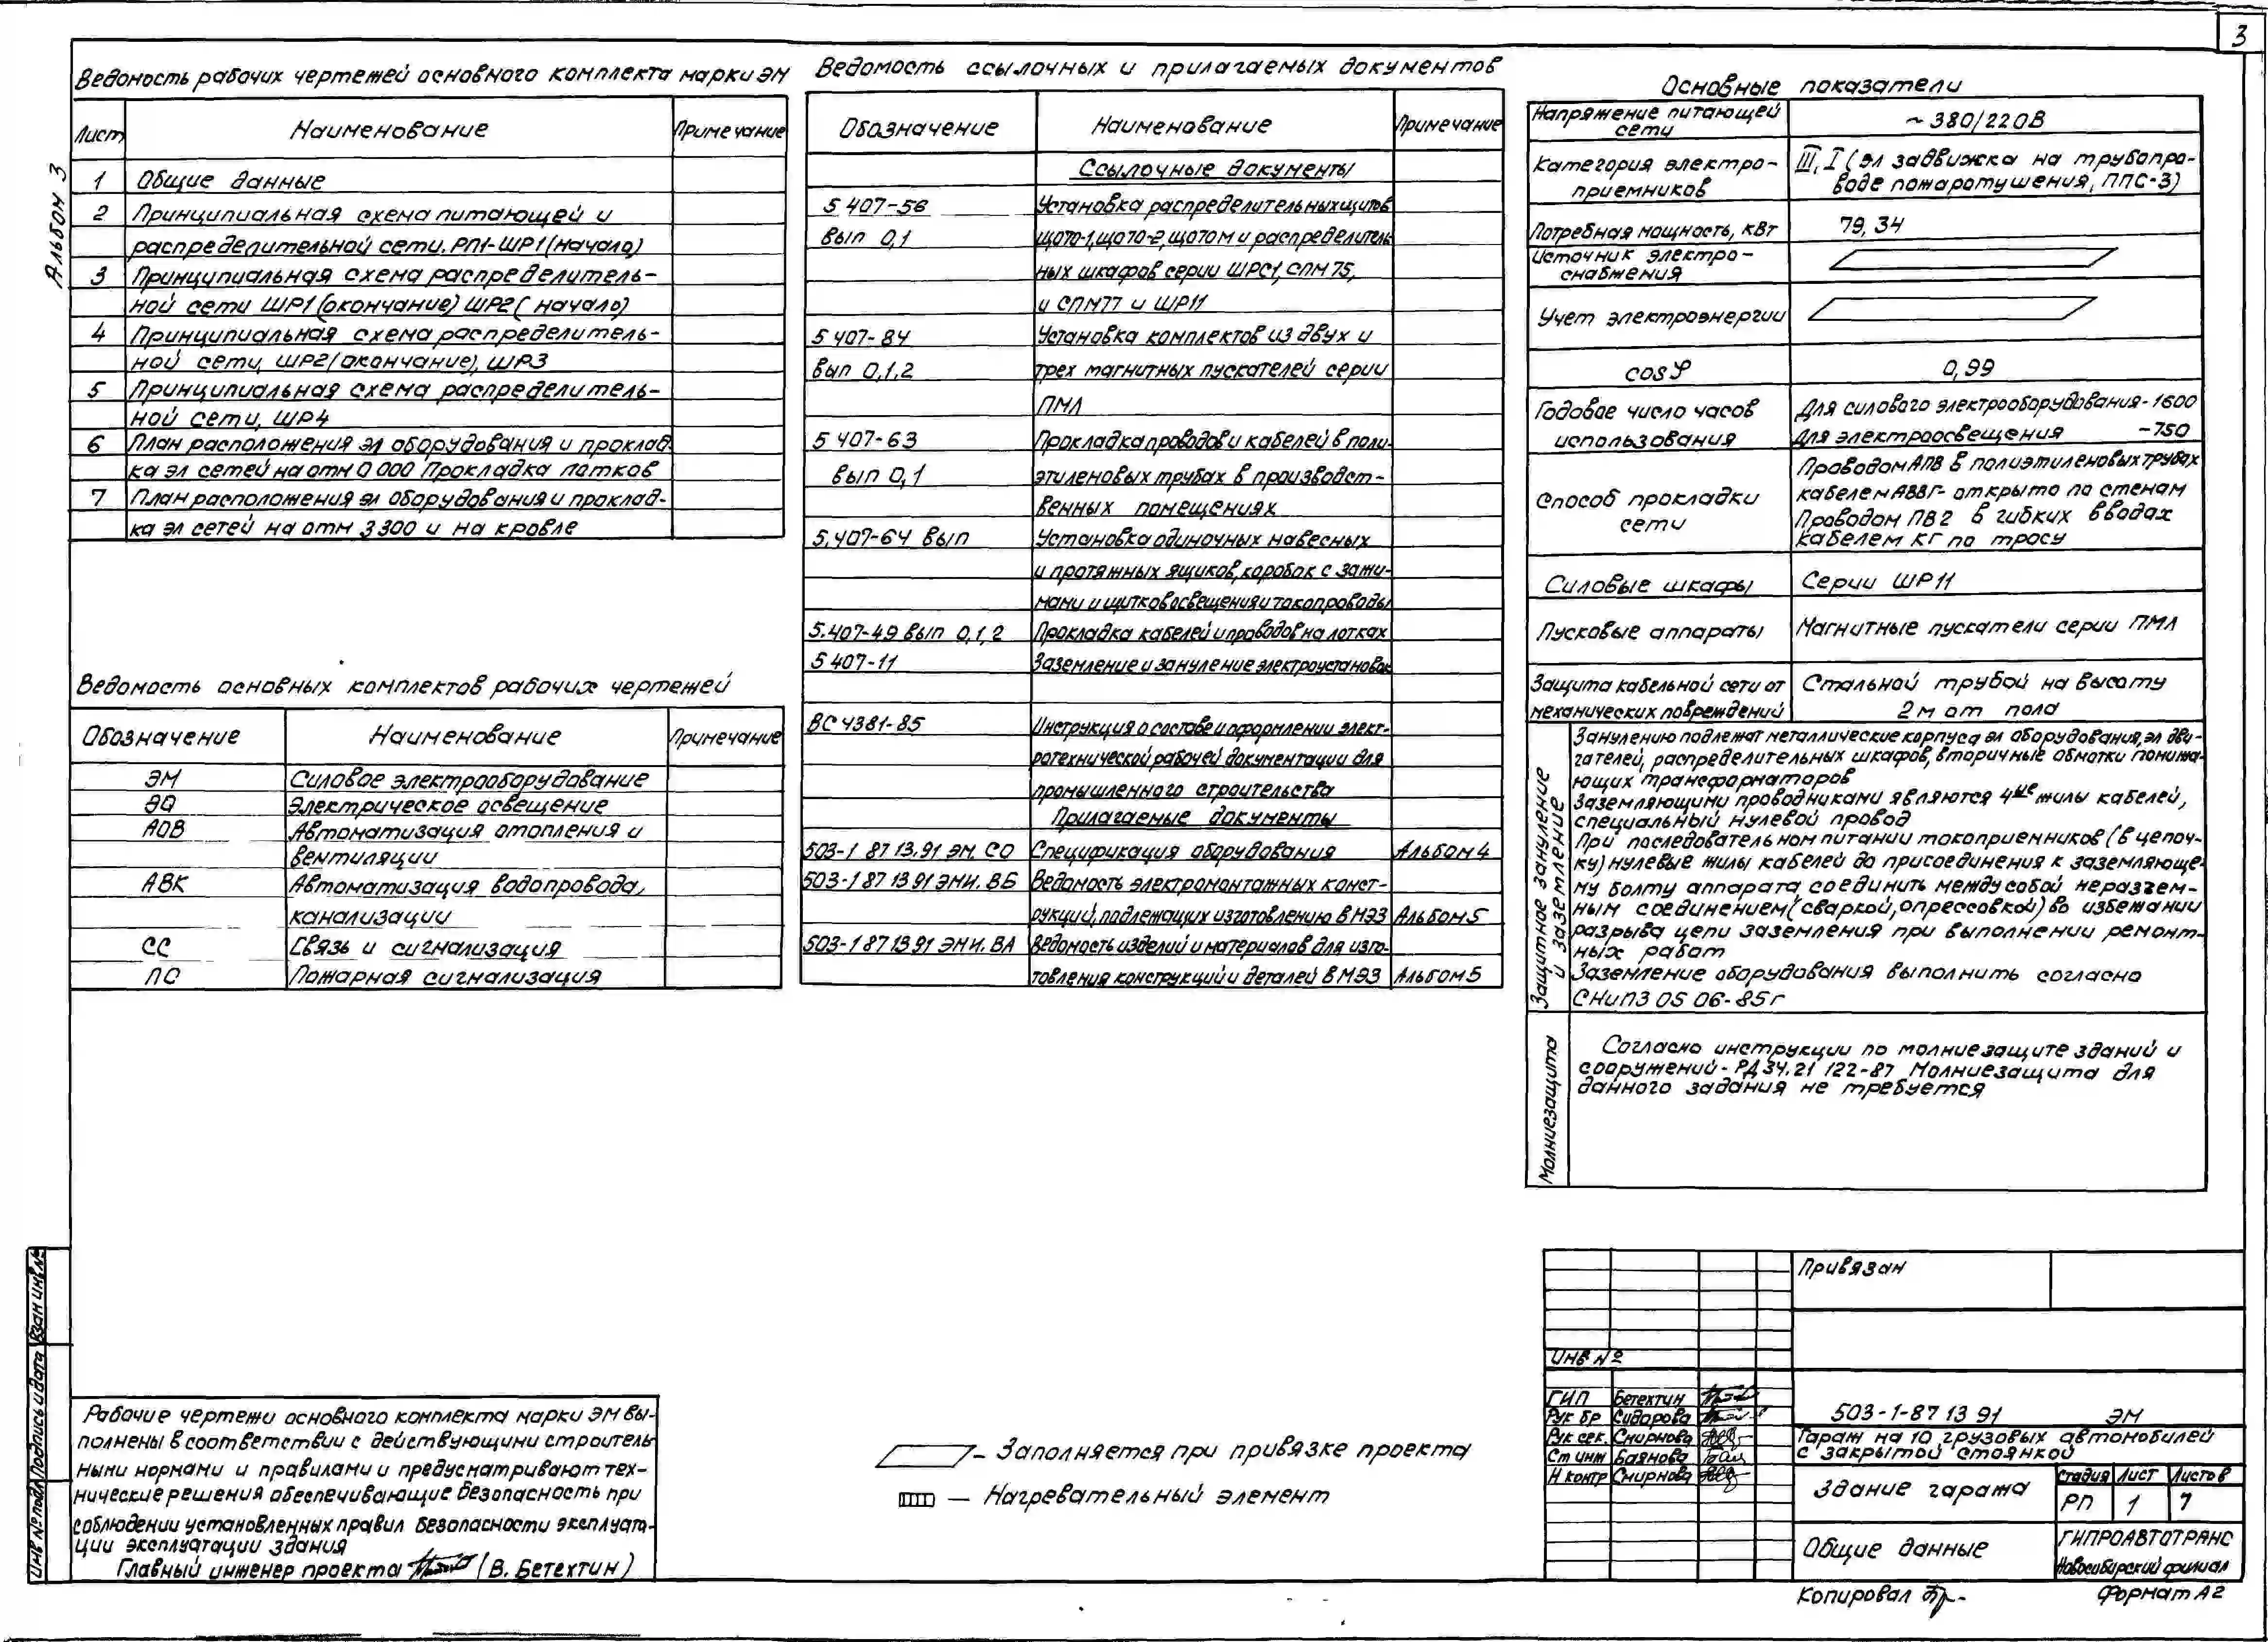 3
Альбом 3
Ведомость рабочих чертежей основного комплекта марки ЭМ
Лист Наименование Примечание
1 Общие данные
2 Принципиальная схема питающей и
распределительной сети. РП1-ШР1 (начало)
3 Принципиальная схема распределитель-
ной сети ШР1 (окончание) ШР2 ( начало)
4 Принципиальная схема распределитель-
ной сети, ШР2 (окончание), ШР3
5 Принципиальная схема распределитель-
ной сети, ШР4
6 План расположения эл оборудования и проклад
ка эл сетей на отм 0 000 Прокладка лотков
7 План расположения эл оборудования и проклад-
ка эл сетей на отм 3 300 и на кровле
Ведомость основных комплектов рабочих чертежей
Обозначение Наименование Примечание
ЭМ Силовое электрооборудование
ЭО Электрическое освещение
АОВ Автоматизация отопления и
вентиляции
АВК Автоматизация водопровода,
канализации
СС Связь и сигнализация
ПС Пожарная сигнализация
Ведомость ссылочных и прилагаемых документов
Обозначение Наименование Примечание
Ссылочные документы
5 407-56 Установка распределительных щитов
Вып 0,1 ЩО70-1, ЩО70-2, ЩО70М и распределитель
ных шкафов серии ШРС1, СПМ 75,
и СПМ77 и ШР11
5 407-84 Установка комплектов из двух и
вып 0,1,2 трех магнитных пускателей серии
ПМЛ
5 407-63 Прокладка проводов и кабелей в поли-
вып 0,1 этиленовых трубах в производст-
венных помещениях
5.407-64 вып Установка одиночных навесных
и протяжных ящиков, коробок с зажи-
мами и щитков освещения и токопроводы
5.407-49 вып 0,1,2 Прокладка кабелей и проводов на лотках
5 407-11 Заземление и зануление электроустановок
ВС 4381-85 Инструкция о составе и оформлении элект-
ротехнической рабочей документации для
промышленного строительства
Прилагаемые документы
503-1 87 13.91 ЭМ. СО Спецификация оборудования Альбом 4
503-1 87 13 91 ЭМИ. ВБ Ведомость электромонтажных конст-
рукций, подлежащих изготовлению в МЭЗ Альбом 5
503-1 87 13 91 ЭМИ. ВА Ведомость изделий и материалов для изго-
товления конструкций и деталей в МЭЗ Альбом 5
Основные показатели
Напряжение питающей сети ~ 380/220В
Категория электро- III, I (эл задвижка на трубопро-
приемников воде пожаротушения, ППС-3)
Потребная мощность, кВт 79, 34
Источник электро-
снабжения
Учет электроэнергии
cosφ 0,99
Годовое число часов Для силового электрооборудования - 1600
использования Для электроосвещения -750
Способ прокладки сети Проводом АПВ в полиэтиленовых трубах
кабелем АВВГ- открыто по стенам
Проводом ПВ2 в гибких вводах
Кабелем КГ по тросу
Силовые шкафы Серии ШР11
Пусковые аппараты Магнитные пускатели серии ПМЛ
Защита кабельной сети от Стальной трубой на высоту
механических повреждений 2 м от пола
Защитное зануление
и заземление
Занулению подлежат металлические корпуса эл оборудования, эл дви-
гателей, распределительных шкафов, вторичные обмотки понижа-
ющих трансформаторов
Заземляющими проводниками являются 4ые жилы кабелей,
специальный нулевой провод
При последовательном питании токоприемников (в цепоч-
ку) нулевые жилы кабелей до присоединения к заземляюще-
му болту аппарата соединить между собой неразъем-
ным соединением (сваркой, опрессовкой) во избежании
разрыва цепи заземления при выполнении ремонт-
ных работ
Заземление оборудования выполнить согласно
СНиП3 05 06-85г
Молниезащита
Согласно инструкции по молниезащите зданий и
сооружений - РД 34.21 122-87 Молниезащита для
данного задания не требуется
Рабочие чертежи основного комплекта марки ЭМ вы-
полнены в соответствии с действующими строитель
ными нормами и правилами и предусматривают тех-
нические решения обеспечивающие безопасность при
соблюдении установленных правил безопасности эксплуата-
ции эксплуатации здания
Главный инженер проекта (В. Бетехтин)
- Заполняется при привязке проекта
— Нагревательный элемент
Инв № подл Подпись и дата Взам инв №
Привязан
Инв №
ГИП Бетехтин
Рук бр Сидорова
Рук сек. Смирнова
Ст инж Баянова
Н контр Смирнова
503-1-87 13 91 ЭМ
Гараж на 10 грузовых автомобилей
с закрытой стоянкой
Здание гаража
Стадия Лист Листов
РП 1 7
Общие данные
ГИПРОАВТОТРАНС
Новосибирский филиал
Копировал
Формат А2